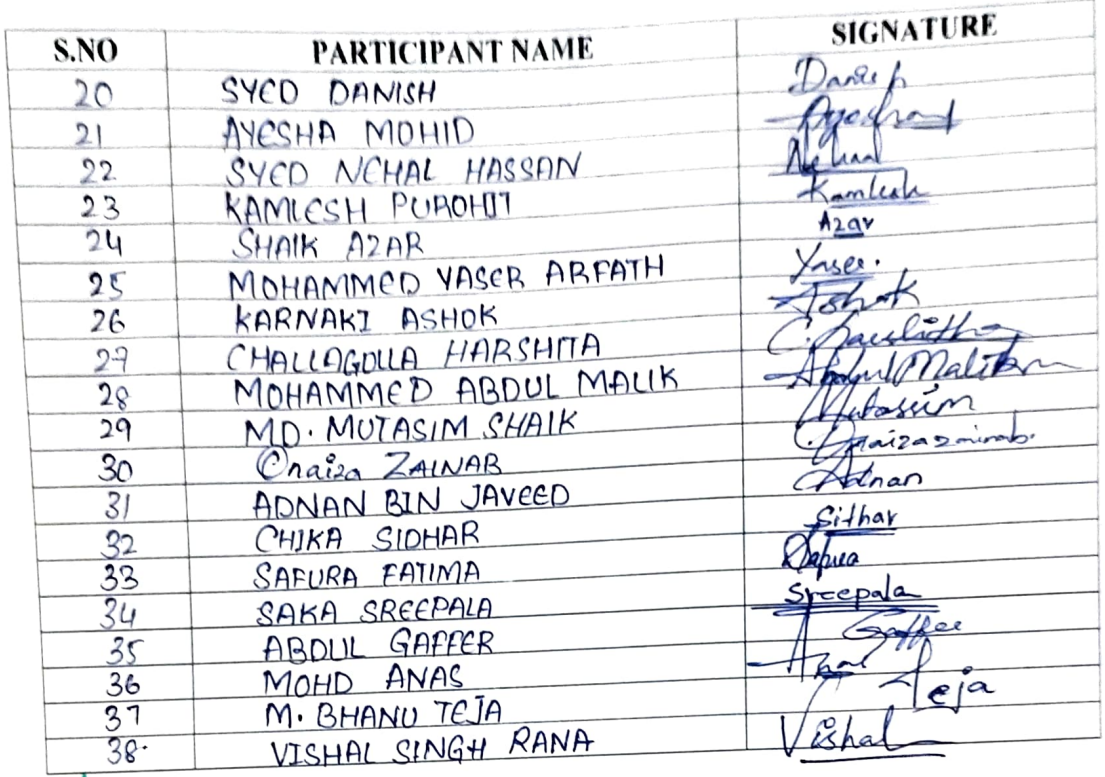 S.NO PARTICIPANT NAME SIGNATURE
20 SYED DANISH Danish
21 AYESHA MOHID
22 SYED NEHAL HASSAN Nehaal
23 KAMLESH PUROHIT Kamlesh
24 SHAIK AZAR Azar
25 MOHAMMED YASER ARFATH Yaser.
26 KARNAKI ASHOK Ashok
27 CHALLAGOLLA HARSHITA
28 MOHAMMED ABDUL MALIK Abdul Malik
29 MD. MUTASIM SHAIK Mutasim
30 Onaiza ZAINAB Onaiza zainab.
31 ADNAN BIN JAVEED Adnan
32 CHIKA SIDHAR Sithar
33 SAFURA FATIMA Safura
34 SAKA SREEPALA Sreepala
35 ABDUL GAFFER A Gaffer
36 MOHD ANAS Anas
37 M. BHANU TEJA Teja
38. VISHAL SINGH RANA Vishal